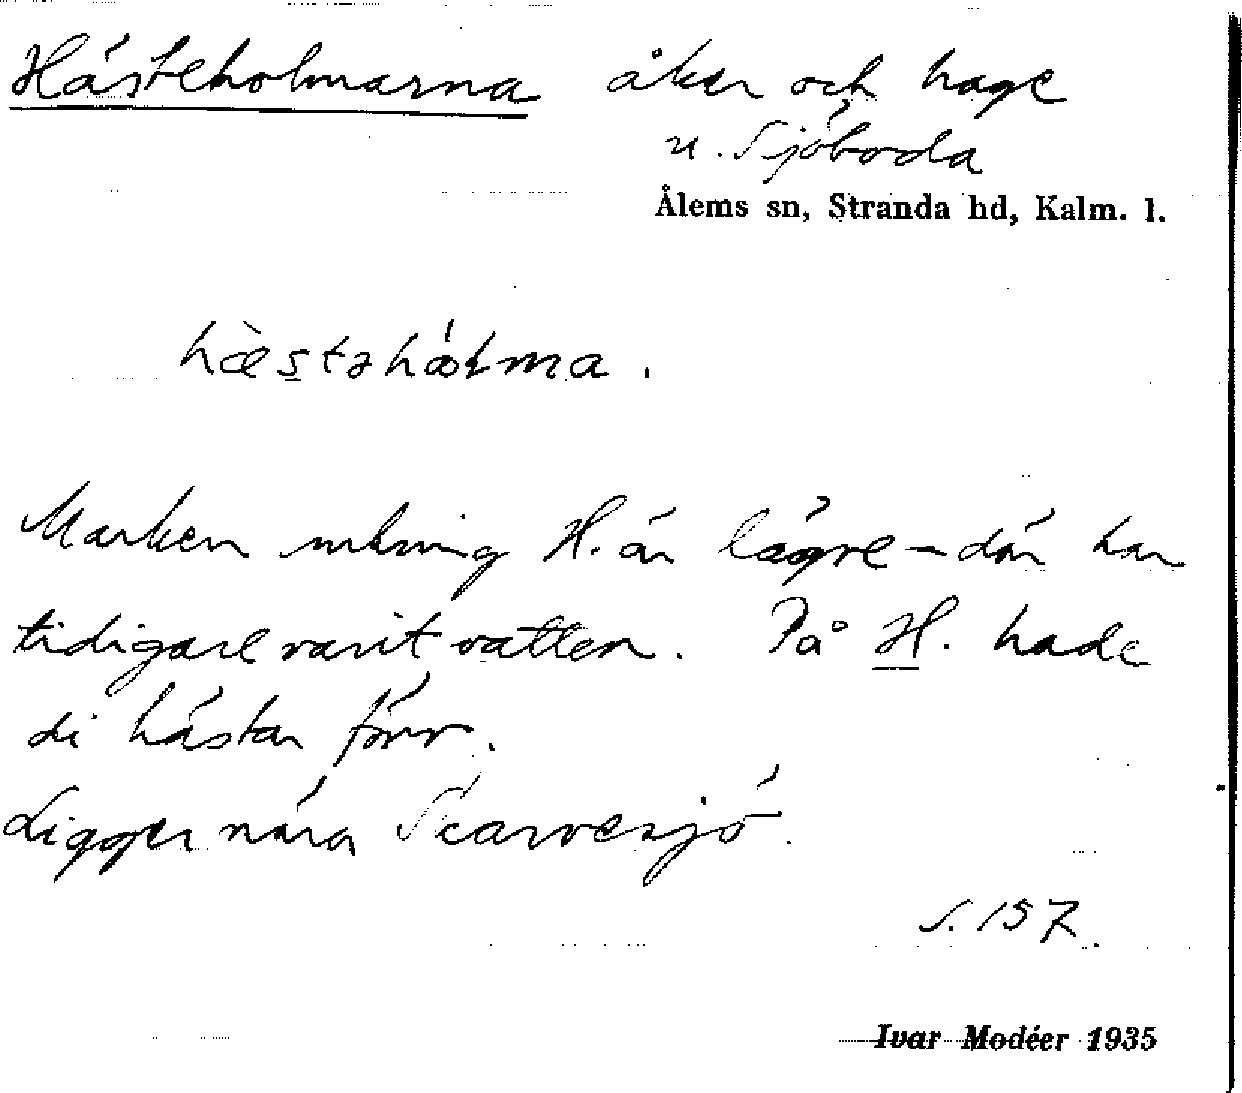 Hästeholmarna åker och hage
u. Sjöboda
Ålems sn, Stranda hd, Kalm. l.
hæ̀stəhólma.
Marken omkring H. är lägre – där har
tidigare varit vatten. På H. hade
di hästar förr.
Ligger nära Skarvesjö.
S. 157.
Ivar Modéer 1935